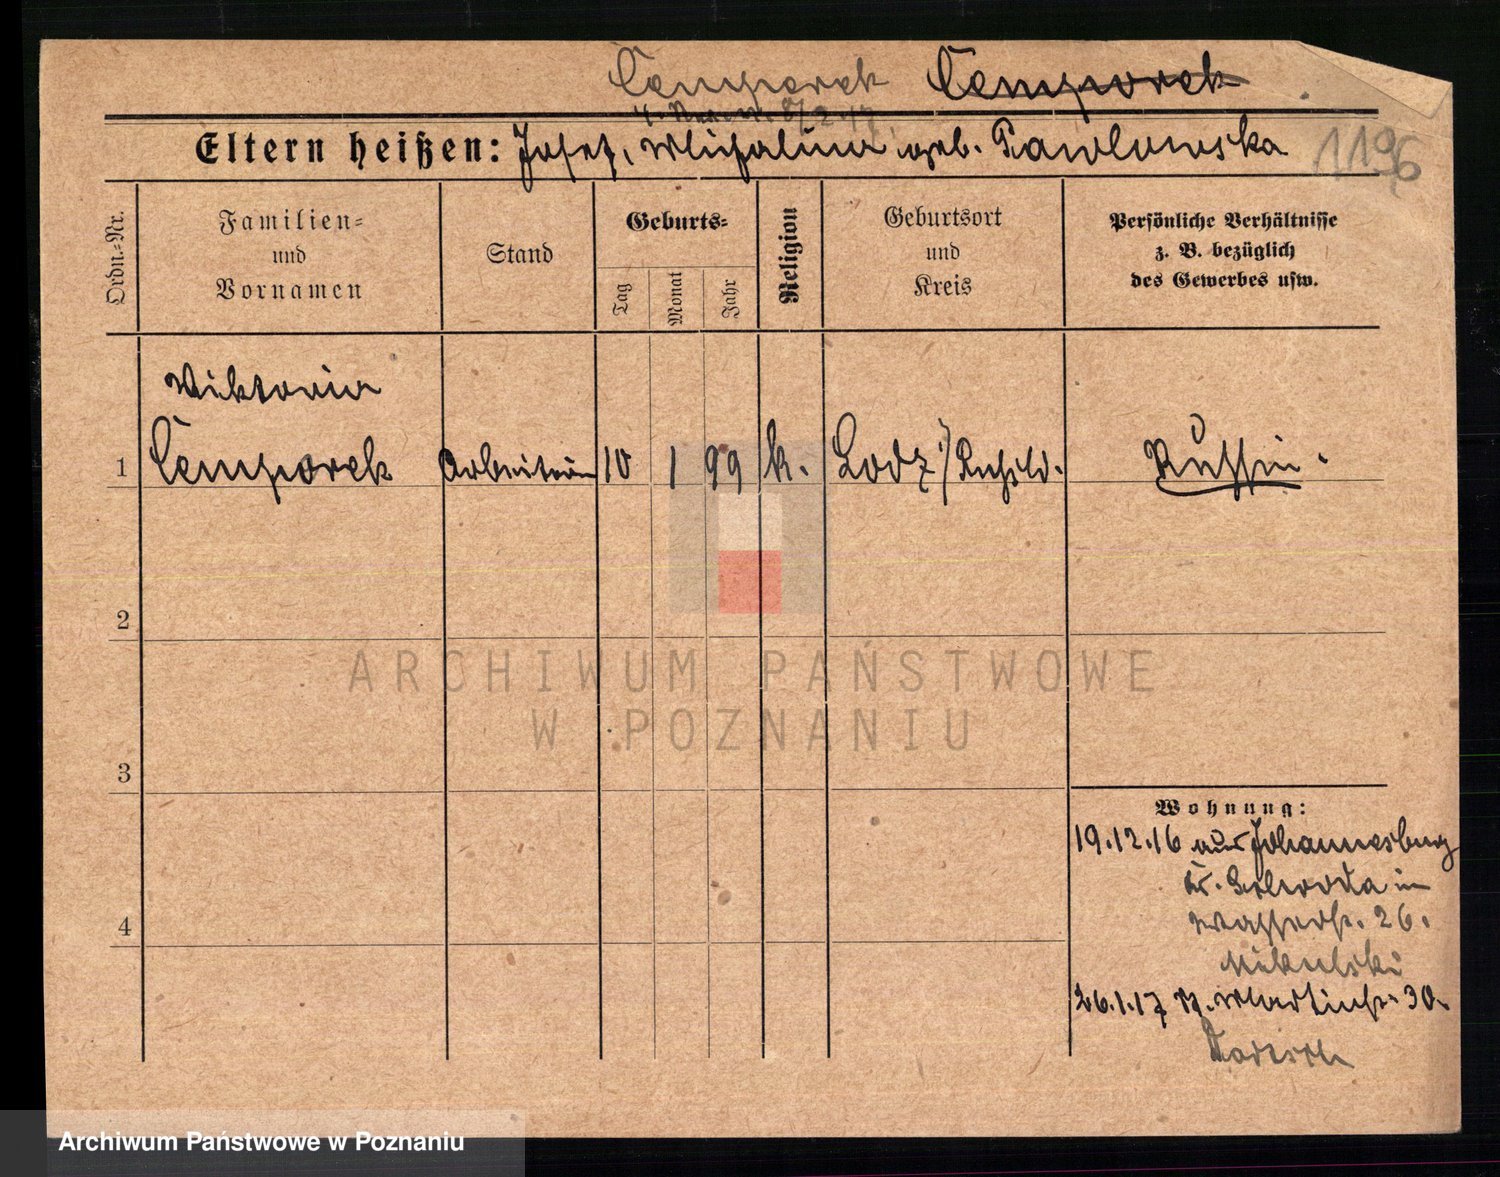 Cemporek Cemporek
8/2.17.
Eltern heißen: Josef, Michalina geb. Pawlowska
1196
Ordn.-Nr.
Familien-
und
Vornamen
Stand
Geburts-
Tag
Monat
Jahr
Religion
Geburtsort
und
Kreis
Persönliche Verhältnisse
z. B. bezüglich
des Gewerbes usw.
Viktoria
1 Cemporek Arbeiterin 10 1 99 k. Lodz / Rußld. Russin.
2
ARCHIWUM PAŃSTWOWE
W POZNANIU
3
Wohnung:
19.12.16 aus Johannesburg
Kr. Schroda in
Wasserstr. 26.
4
Mikulski
26.1.17 St. Martinstr. 30.
Archiwum Państwowe w Poznaniu